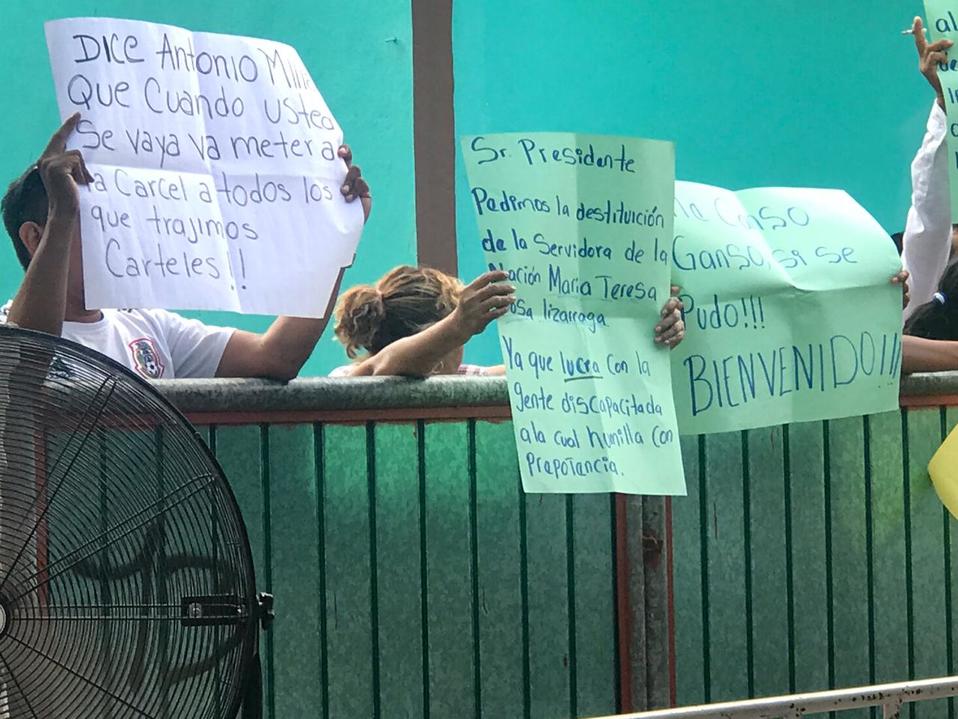 DICE Antonio
Que Cuando usted
Se vaya va meter a
la Carcel a todos los
que trajimos
Carteles!!
Sr. Presidente
Padimos la destitución
de la Servidora de la
Nación Maria Teresa
Sosa lizarraga
Ya que lucra con la
gente discapacitada
ala cual humilla con
Prepotancia.
Canso
Ganso, si se
Pudo!!!
BIENVENIDO!!!
al
de